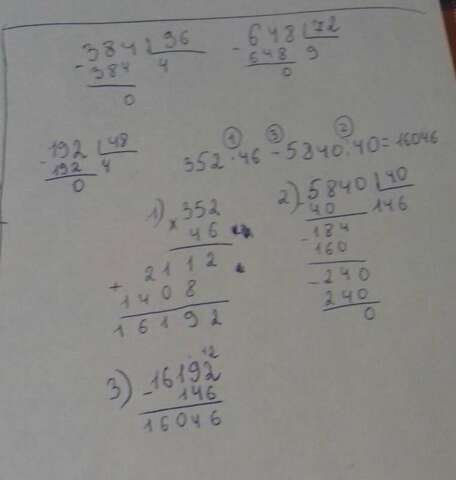 -384 96
384 4
0
-648 72
648 9
0
-192 48
192 4
0
① ③ ②
352·46-5840:40=16046
1) ×352
46
2112
+1408
16192
2) -5840 40
40 146
-184
160
-240
240
0
12
3) -16192
146
16046